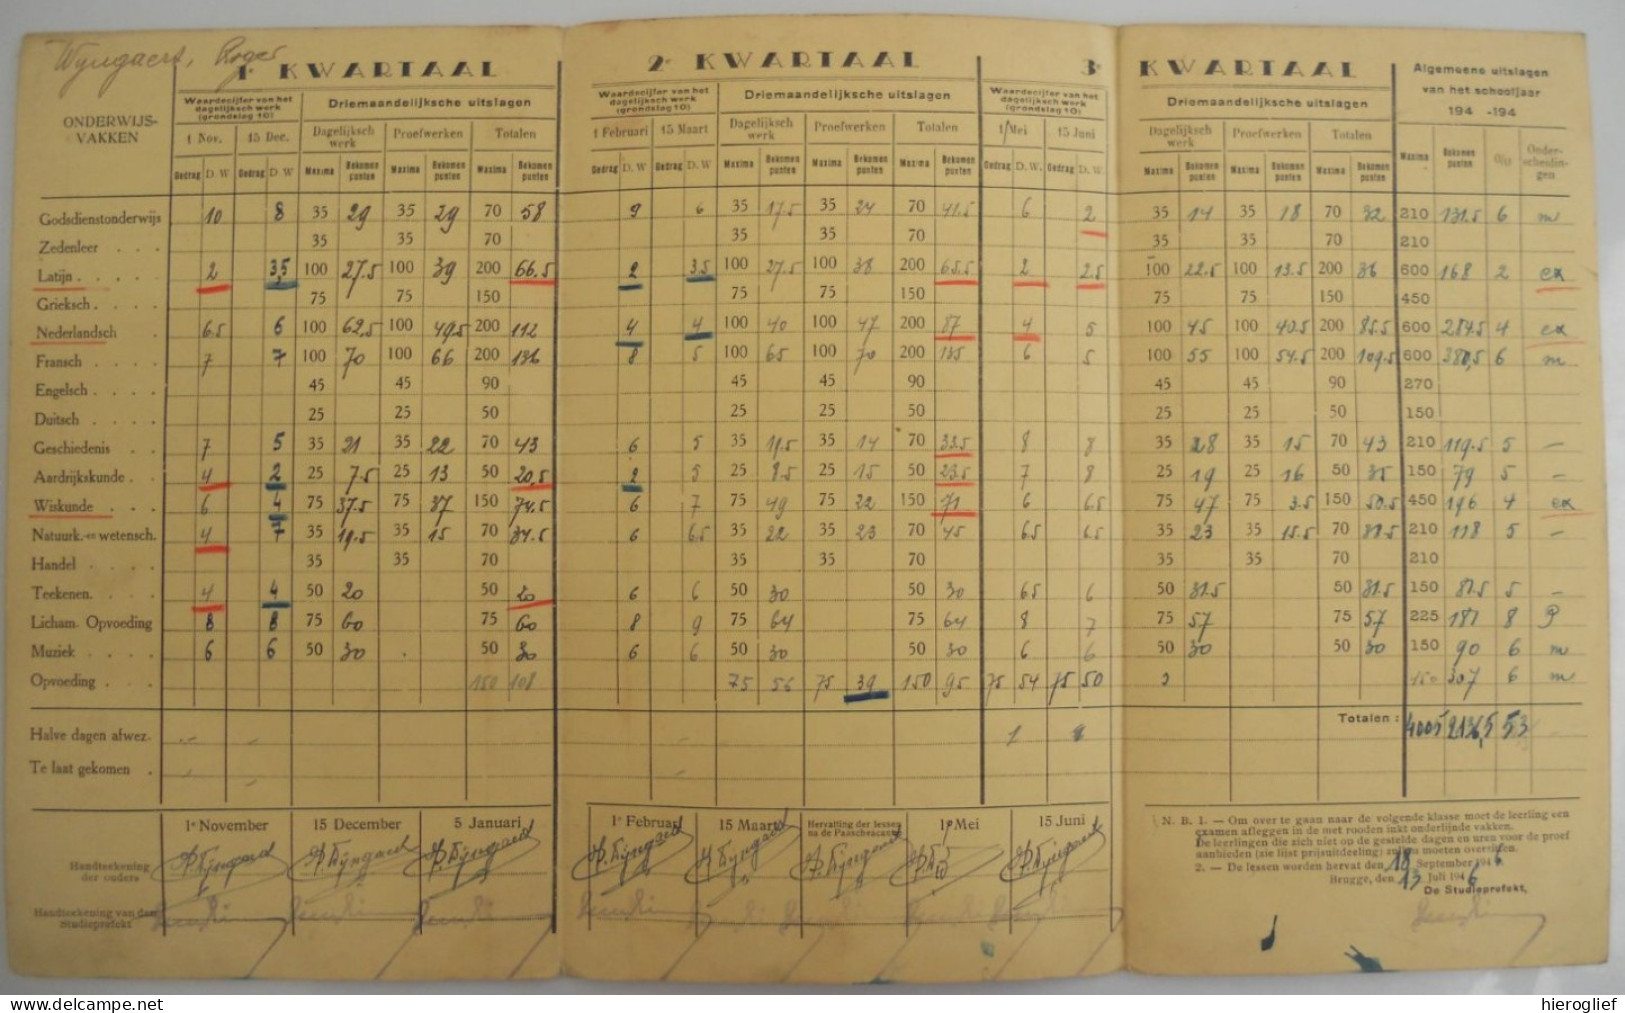 Wyngaert, Roger
1e KWARTAAL 2e KWARTAAL 3e KWARTAAL
ONDERWIJS-VAKKEN
Waardecijfer van het dagelijksch werk (grondslag 10) Driemaandelijksche uitslagen Waardecijfer van het dagelijksch werk (grondslag 10) Driemaandelijksche uitslagen Waardecijfer van het dagelijksch werk (grondslag 10) Driemaandelijksche uitslagen Algemeene uitslagen van het schooljaar 194 -194
1 Nov. 15 Dec. Dagelijksch werk Proefwerken Totalen 1 Februari 15 Maart Dagelijksch werk Proefwerken Totalen 1 Mei 15 Juni Dagelijksch werk Proefwerken Totalen Maxima Bekomen punten 0/0 Onder-scheidin-gen
Gedrag D. W Gedrag D. W Maxima Bekomen punten Maxima Bekomen punten Maxima Bekomen punten Gedrag D. W Gedrag D. W Maxima Bekomen punten Maxima Bekomen punten Maxima Bekomen punten Gedrag D. W. Gedrag D. W. Maxima Bekomen punten Maxima Bekomen punten Maxima Bekomen punten
Godsdienstonderwijs 10 8 35 29 35 29 70 58 9 6 35 17.5 35 24 70 41.5 6 2 35 14 35 18 70 32 210 131.5 6 m
Zedenleer . . . 35 35 70 35 35 70 35 35 70 210
Latijn . . . . . 2 3,5 100 27.5 100 39 200 66.5 2 3.5 100 27.5 100 38 200 65.5 2 2.5 100 22.5 100 13.5 200 36 600 168 2 ex
Grieksch . . . . 75 75 150 75 75 150 75 75 150 450
Nederlandsch . 6.5 6 100 62.5 100 49.5 200 112 4 4 100 40 100 47 200 87 4 5 100 45 100 40.5 200 85.5 600 284.5 4 ex
Fransch . . . . 7 7 100 70 100 66 200 136 8 5 100 65 100 70 200 135 6 5 100 55 100 54.5 200 109.5 600 380,5 6 m
Engelsch . . . . 45 45 90 45 45 90 45 45 90 270
Duitsch . . . . 25 25 50 25 25 50 25 25 50 150
Geschiedenis . . 7 5 35 21 35 22 70 43 6 5 35 19.5 35 14 70 33.5 8 8 35 28 35 15 70 43 210 119.5 5 –
Aardrijkskunde . . 4 2 25 7.5 25 13 50 20,5 2 5 25 8.5 25 15 50 23.5 7 8 25 19 25 16 50 35 150 79 5 –
Wiskunde . . . 6 4 75 37.5 75 37 150 74.5 6 7 75 49 75 22 150 71 6 6.5 75 47 75 3.5 150 50.5 450 196 4 ex
Natuurk.-en wetensch. 4 7 35 19.5 35 15 70 34.5 6 6.5 35 22 35 23 70 45 6.5 6.5 35 23 35 15.5 70 38.5 210 118 5 –
Handel . . . . 35 35 70 35 35 70 35 35 70 210
Teekenen. . . . 4 4 50 20 50 20 6 6 50 30 50 30 6.5 6 50 31.5 50 31.5 150 81.5 5 –
Licham. Opvoeding 8 8 75 60 75 60 8 9 75 64 75 64 8 7 75 57 75 57 225 181 8 P
Muziek . . . . 6 6 50 30 50 30 6 6 50 30 50 30 6 6 50 30 50 30 150 90 6 m
Opvoeding . . . 150 108 75 56 75 39 150 95 75 54 75 50 307 6 m
Halve dagen afwez. 1 Totalen : 4005 2136,5 53
Te laat gekomen .
1e November 15 December 5 Januari 1e Februari 15 Maart Hervatting der lessen na de Paaschvacantie 1e Mei 15 Juni
Handteekening der ouders
Handteekening van den Studieprefekt
N. B. 1. — Om over te gaan naar de volgende klasse moet de leerling een
examen afleggen in de met rooden inkt onderlijnde vakken.
De leerlingen die zich niet op de gestelde dagen en uren voor de proef
aanbieden (zie lijst prijsuitdeeling) zullen moeten overzitten.
2. — De lessen worden hervat den 18 September 1946
Brugge, den 13 Juli 1946
De Studieprefekt,
hieroglief
My eBay Store